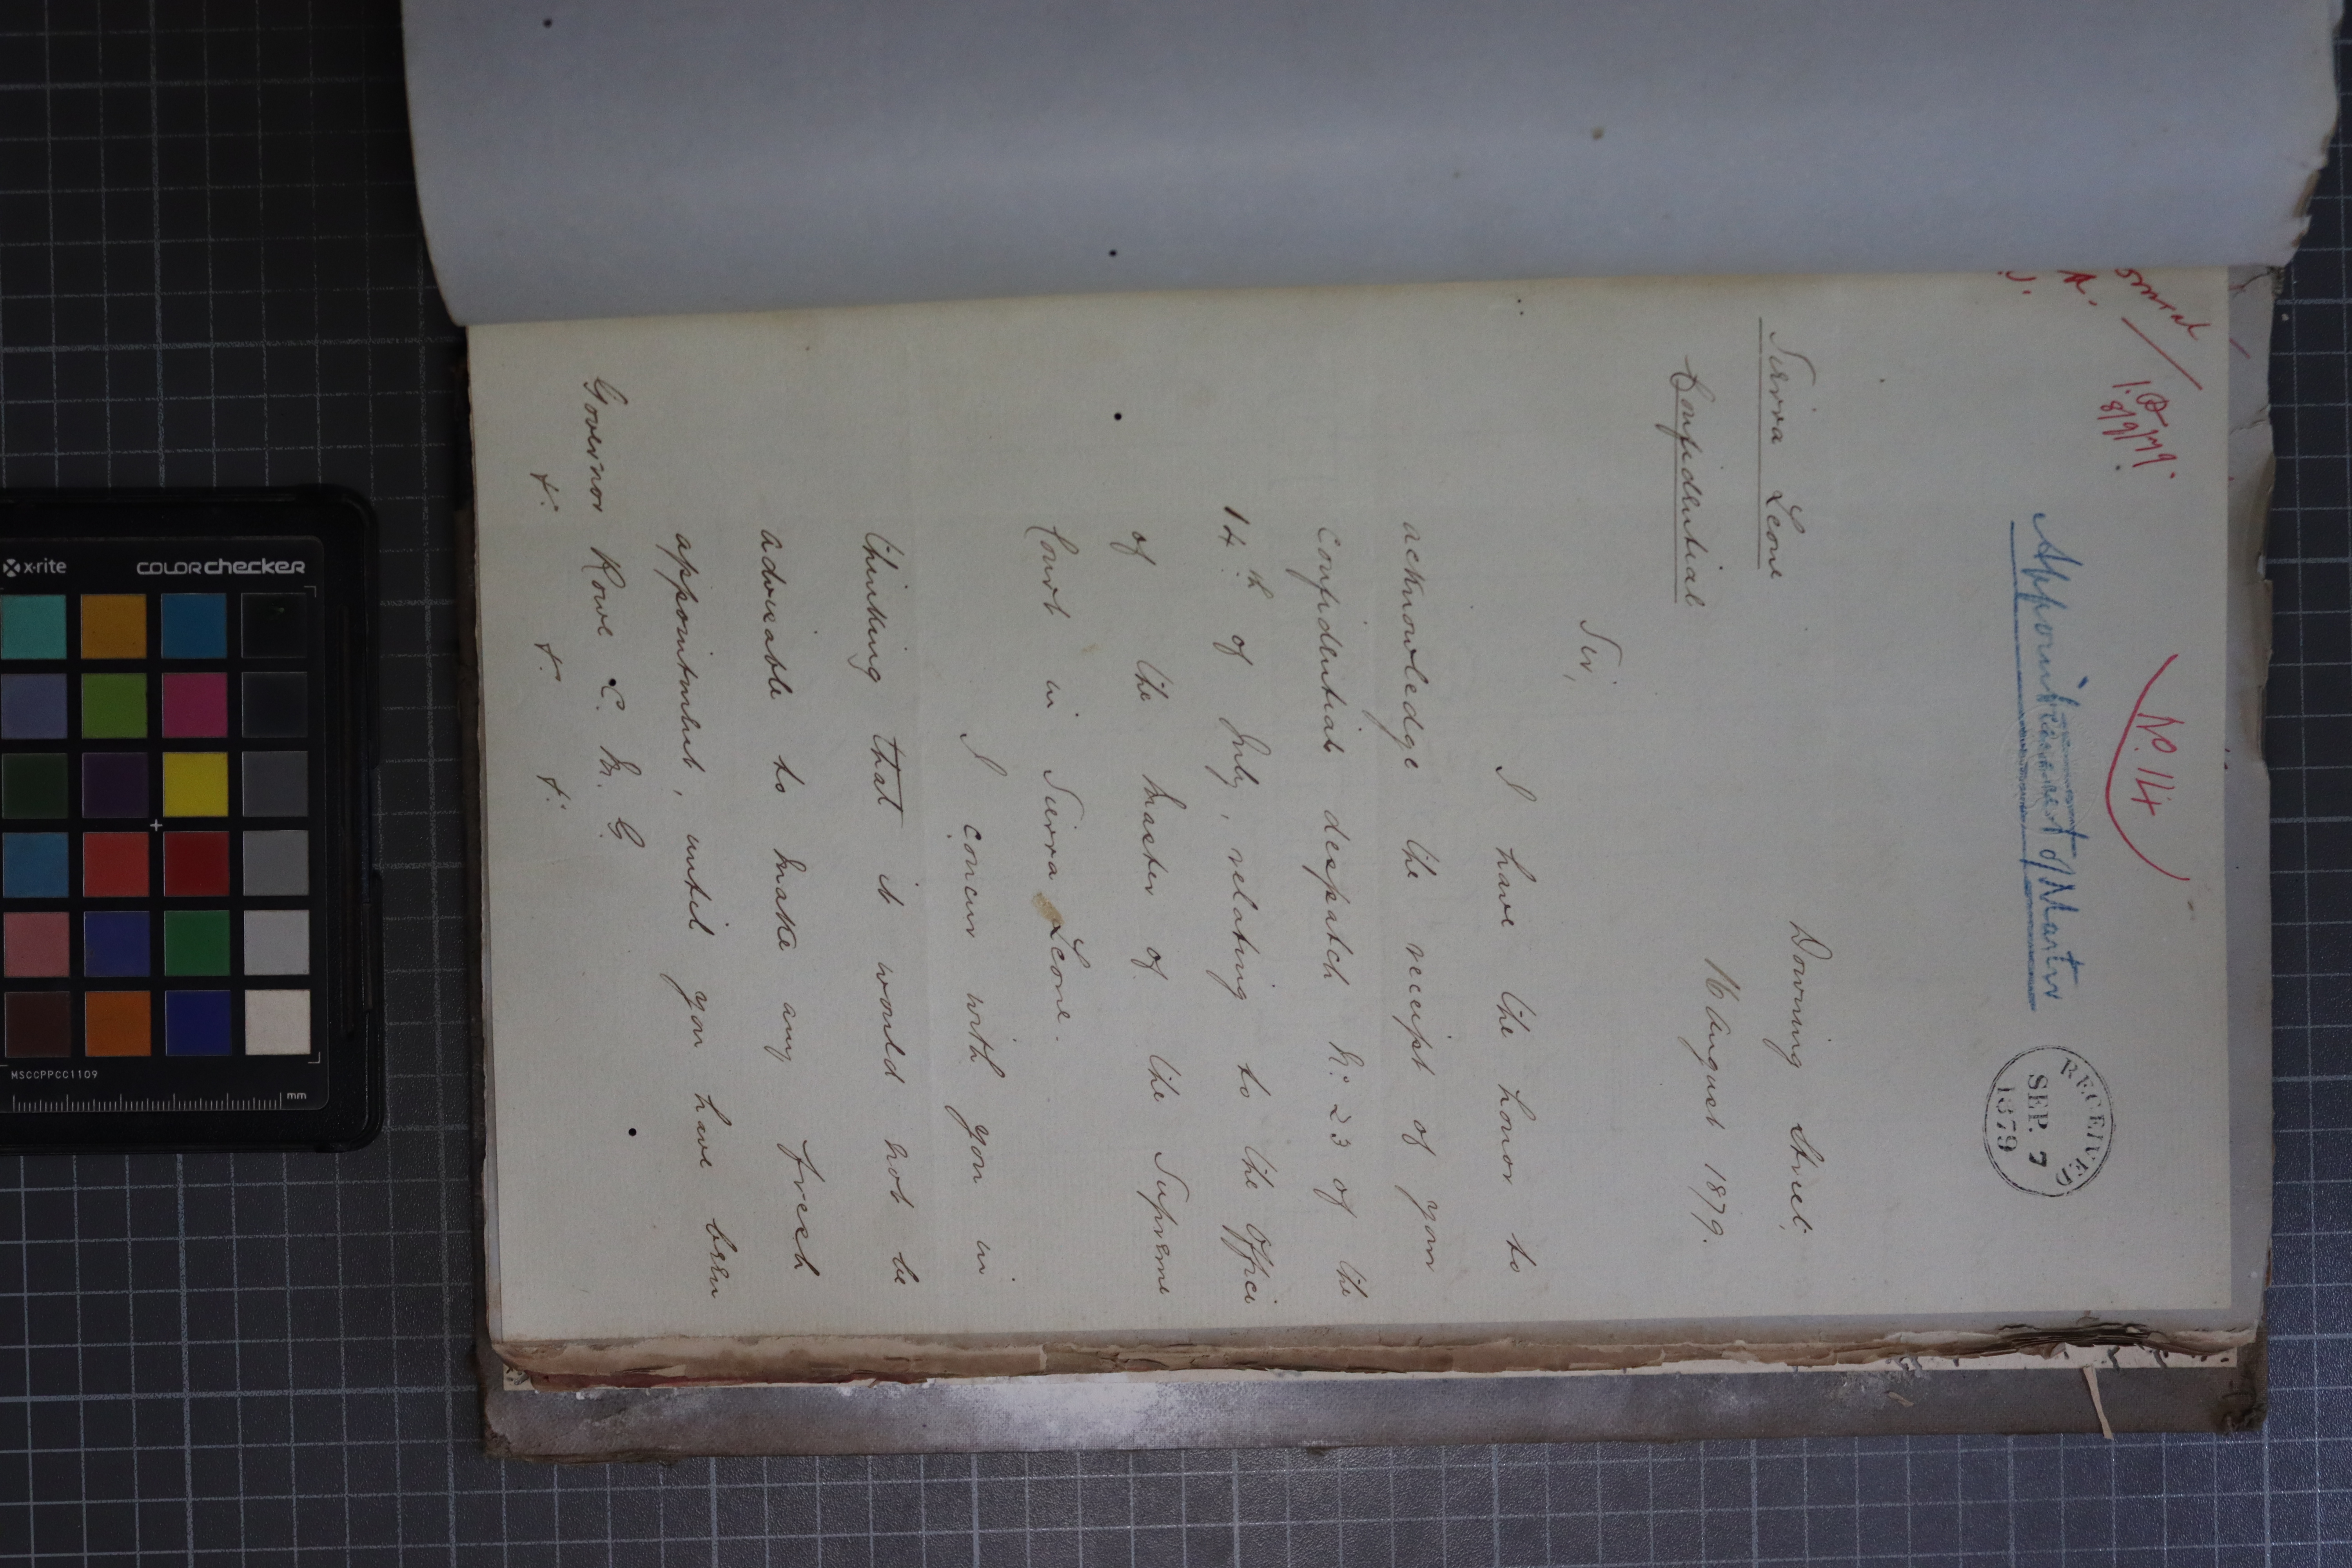 No. 14
Appointment of Master
RECEIVED
SEP. 7
1879
Sierra Leone
Confidential
Downing Street,
16 August 1879.
Sir,
I have the honor to
acknowledge the receipt of your
confidential despatch No. 23 of the
14th of July, relating to the Office
of the Master of the Supreme
Court in Sierra Leone.
I concur with you in
thinking that it would not be
adviseable to make any fresh
appointment, until you have been
Governor Rowe C. M. G
&. &. &.
x·rite
COLORchecker
MSCCPPCC1109
mm